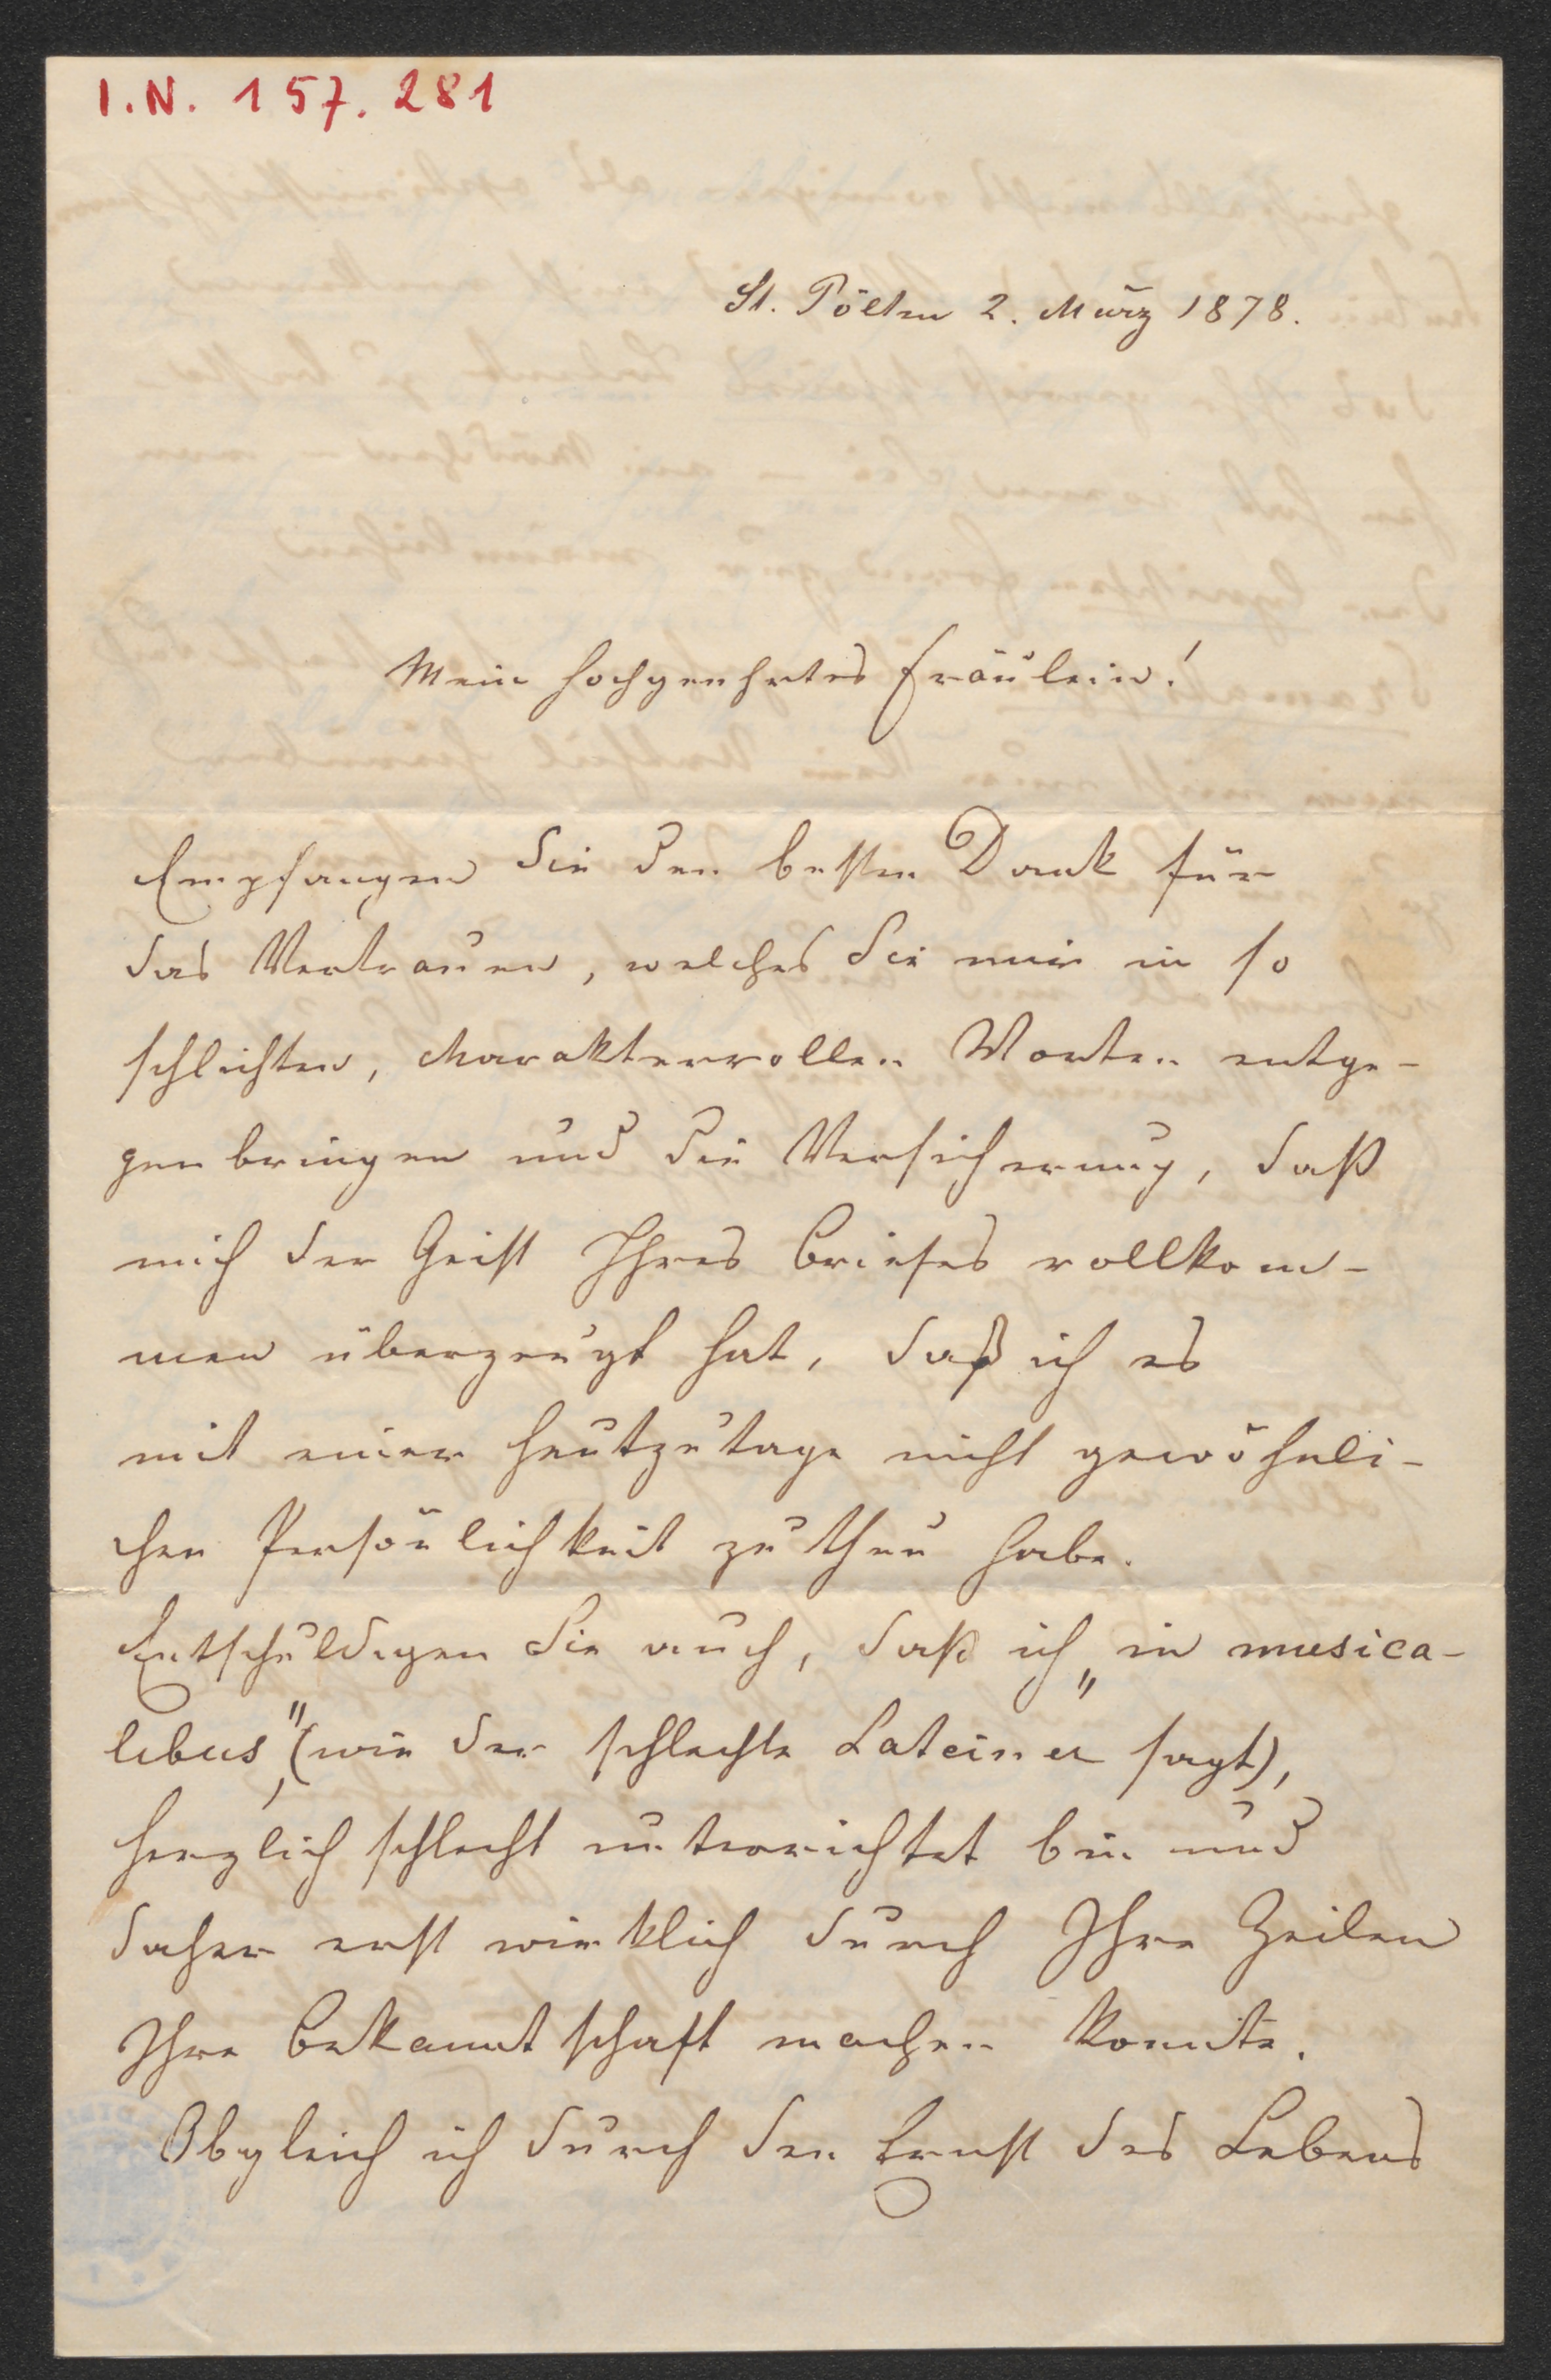 I.N. 157.281
St. Pölten 2. März 1878.
Mein hochgeehrtes Fräulein!
Empfangen Sie den besten Dank für
das Vertrauen, welches Sie mir in so
schlichten, charaktervollen Worten entge-
gen bringen und die Versicherung, daß
mich der Geist Ihres Briefes vollkom-
men überzeugt hat, daß ich es
mit einer heutzutage nicht gewöhnli-
chen Persönlichkeit zu thun habe.
Entschuldigen Sie auch, daß ich „in musica-
libus", (wie der schlechte Lateiner sagt),
herzlich schlecht unterrichtet bin und
daher erst wirklich durch Ihre Zeilen
Ihre Bekanntschaft machen konnte.
Obgleich ich durch den Ernst des Lebens